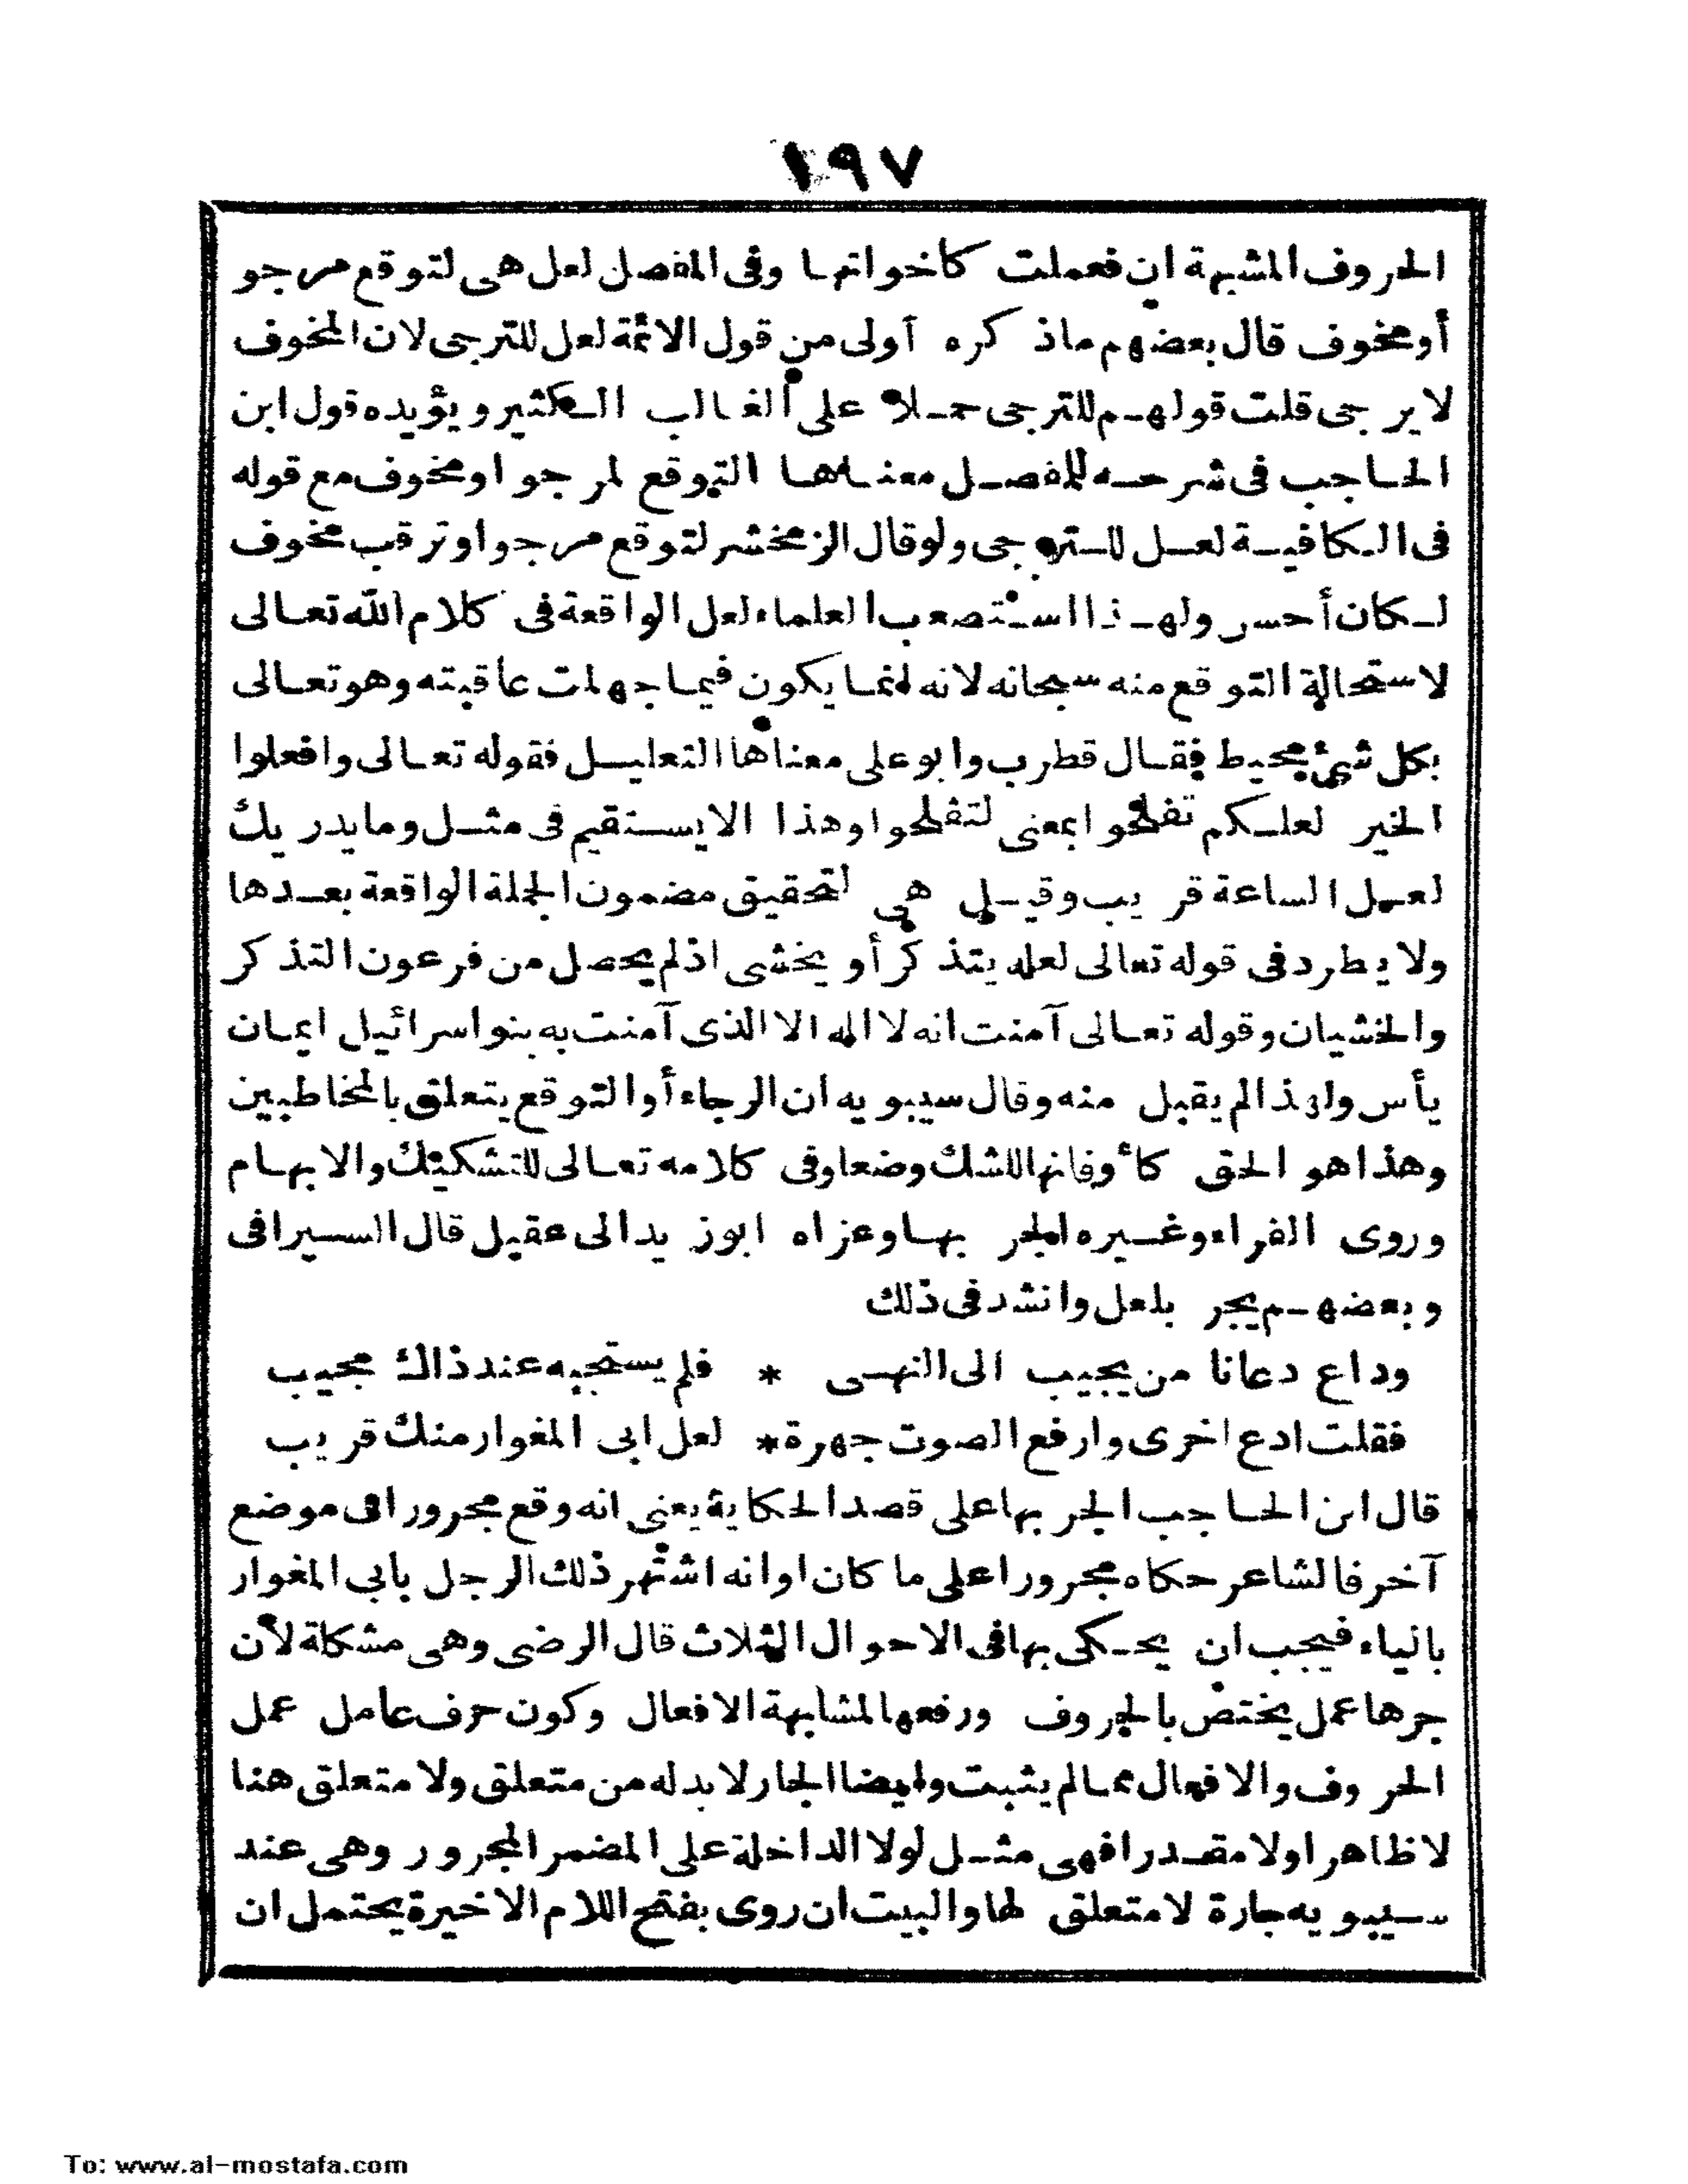 ١٩٧
الحروف المشبهة ان فعملت كاخواتها وفى المفصل لعل هى لتوقع مرجو
أو مخوف قال بعضهم ماذكره أولى من قول الائمة لعل للترجى لان المخوف
لا يرجى قلت قولهم للترجى حملا على الغالب الكثير ويؤيده قول ابن
الحاجب فى شرحه للمفصل معناها التوقع لمرجو او مخوف مع قوله
فى الكافية لعل للترجى ولو قال الزمخشر لتوقع مرجو او ترقب مخوف
لكان أحسن ولهذا استصعب العلماء لعل الواقعة فى كلام الله تعالى
لاستحالة التوقع منه سبحانه لانه انما يكون فيما جهلت عاقبته وهو تعالى
بكل شئ محيط فقال قطرب وابو على معناها التعليل فقوله تعالى وافعلوا
الخير لعلكم تفلحوا بمعنى لتفلحوا وهذا الايستقيم فى مثل وما يدريك
لعل الساعة قريب وقيل هى لتحقيق مضمون الجملة الواقعة بعدها
ولا يطرد فى قوله تعالى لعله يتذكر أو يخشى اذ لم يحصل من فرعون التذكر
والخشيان وقوله تعالى آمنت انه لا اله الا الذى آمنت به بنو اسرائيل ايمان
يأس ولهذا لم يقبل منه وقال سيبويه ان الرجاء أو التوقع يتعلق بالمخاطبين
وهذا هو الحق كأو فانها للشك وضعا وفى كلامه تعالى للتشكيك والابهام
وروى الفراء وغيره الجر بها وعزاه ابوزيد الى عقيل قال السيرافى
وبعضهم يجر بلعل وانشد فى ذلك
وداع دعانا من يجيب الى النهى * فلم يستجبه عند ذاك مجيب
فقلت ادع اخرى وارفع الصوت جهرة * لعل ابى المغوار منك قريب
قال ابن الحاجب الجر بها على قصد الحكاية يعنى انه وقع مجرورا فى موضع
آخر فالشاعر حكاه مجرورا على ما كان او انه اشتهر ذلك الرجل بابى المغوار
بالياء فيجب ان يحكى بها فى الاحوال الثلاث قال الرضى وهى مشكلة لأن
جرها عمل يختص بالحروف ورفعها لمشابهة الافعال وكون حرف عامل عمل
الحروف والافعال مما لم يثبت وايضا الجار لا بد له من متعلق ولا متعلق هنا
لا ظاهرا ولا مقدرا فهى مثل لولا الداخلة على المضمر المجرور وهى عند
سيبويه جارة لا متعلق لها والبيت ان روى بفتح اللام الاخيرة يحتمل ان
To: www.al-mostafa.com